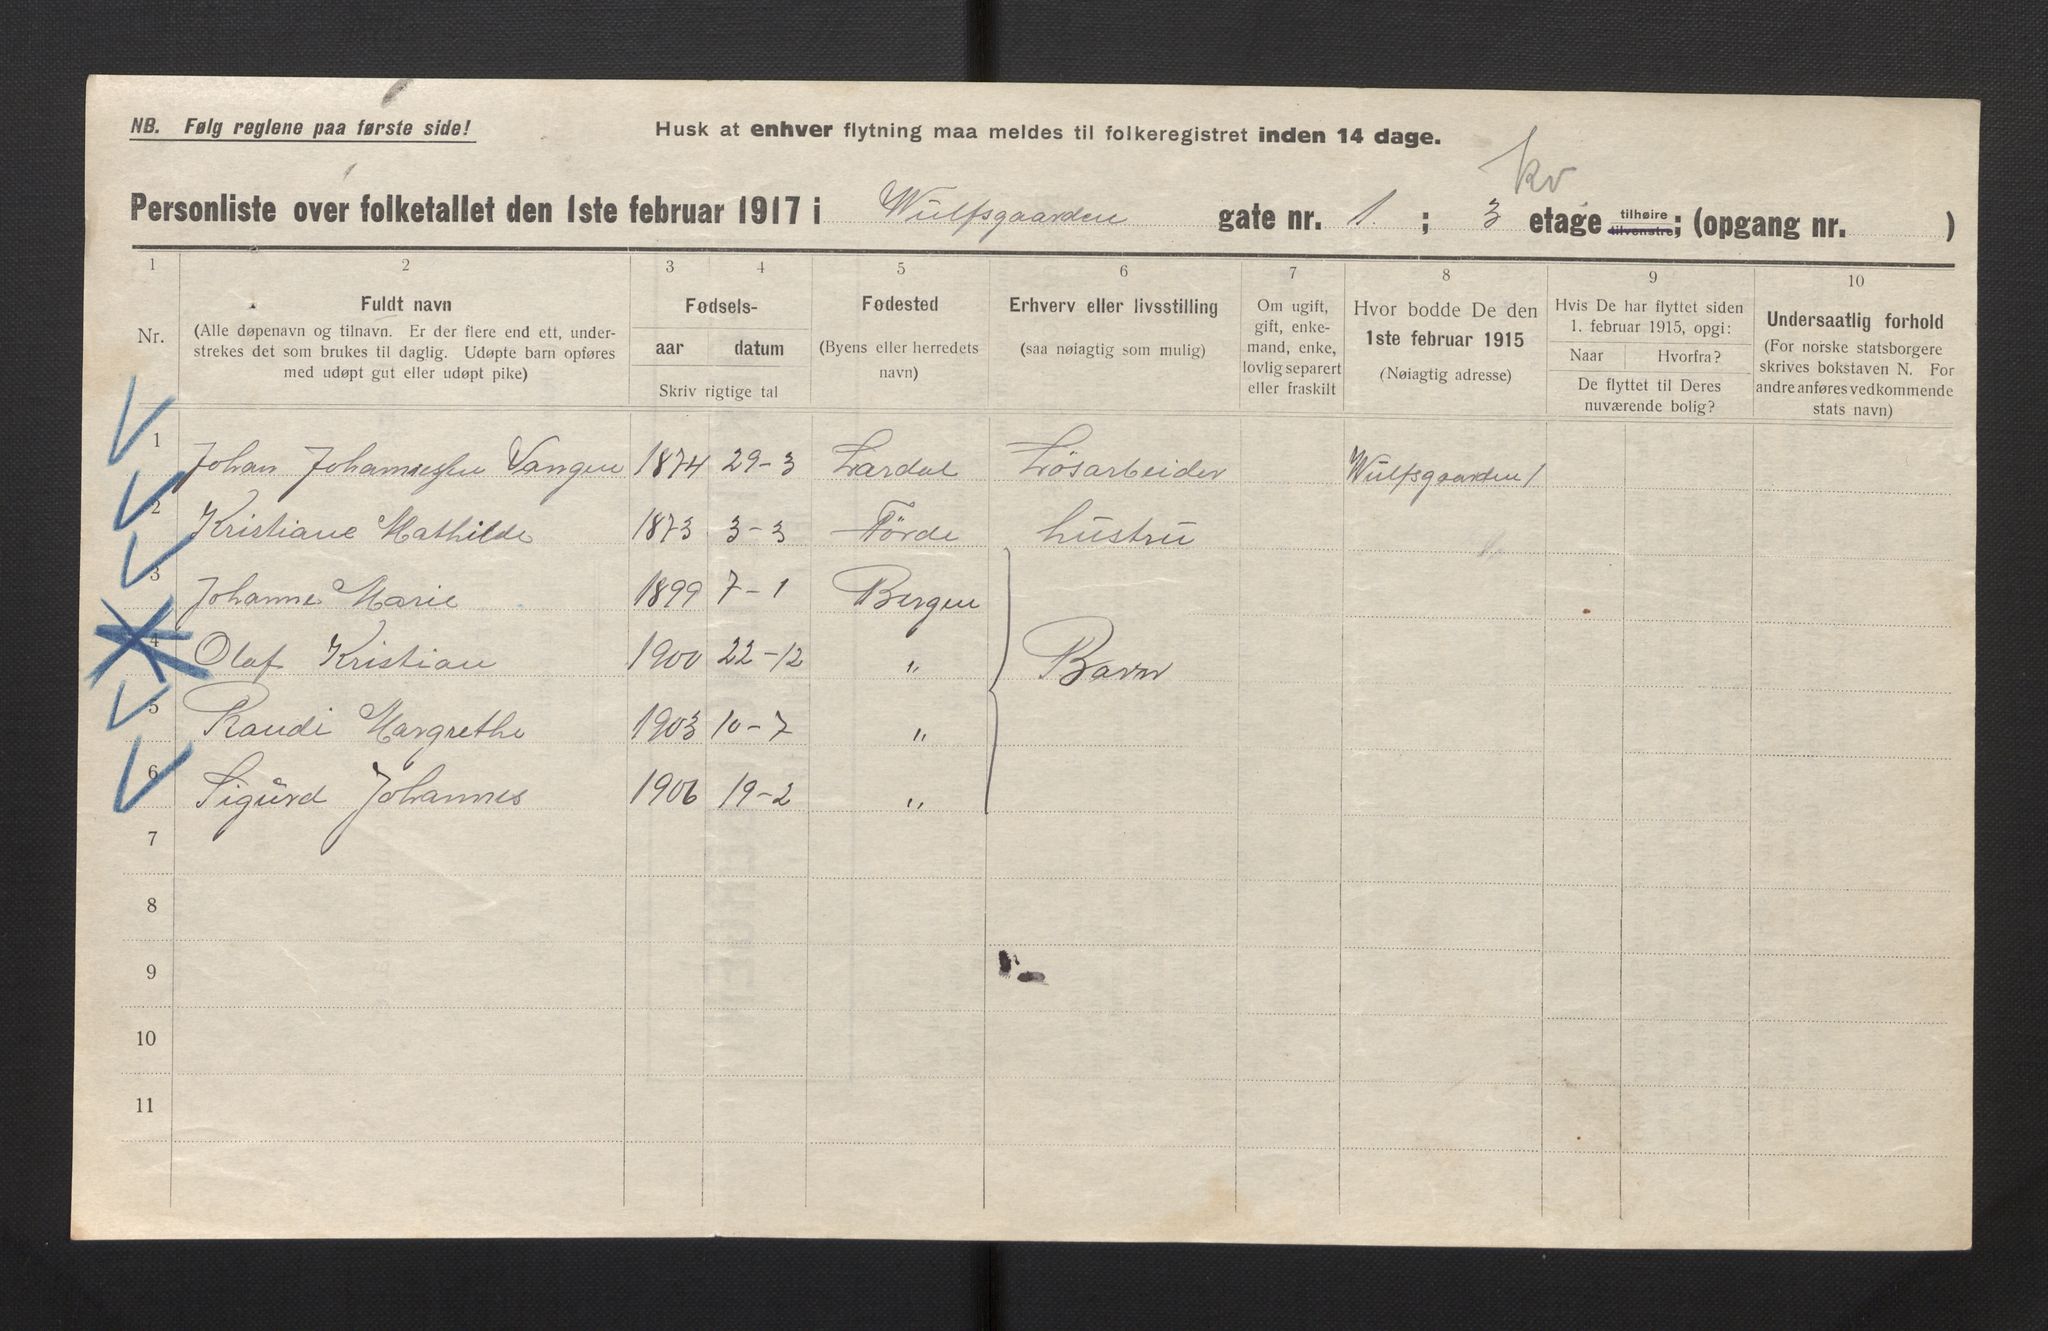 NB. Følg reglene paa første side!
Husk at enhver flytning maa meldes til folkeregistret inden 14 dage.
kv
Personliste over folketallet den 1ste februar 1917 i Wulfsgaarden gate nr. 1. ; 3 etage tilhøire tilvenstre; (opgang nr. )
1 2 3 4 5 6 7 8 9 10
Nr.
Fuldt navn
(Alle døpenavn og tilnavn. Er der flere end ett, under-
strekes det som brukes til daglig. Udøpte barn opføres
med udøpt gut eller udøpt pike)
Fødsels-
aar datum
Skriv rigtige tal
Fødested
(Byens eller herredets
navn)
Erhverv eller livsstilling
(saa nøiagtig som mulig)
Om ugift,
gift, enke-
mand, enke,
lovlig separert
eller fraskilt
Hvor bodde De den
1ste februar 1915
(Nøiagtig adresse)
Hvis De har flyttet siden
1. februar 1915, opgi:
Naar Hvorfra?
De flyttet til Deres
nuværende bolig?
Undersaatlig forhold
(For norske statsborgere
skrives bokstaven N. For
andre anføres vedkommende
stats navn)
1 Johan Johannessen Vangen 1874 29-3 Lardal Lösarbeider Wulfsgaarden 1
2 Kristiane Mathilde 1873 3-3 Förde hustru
3 Johanne Marie 1899 7-1 Bergen
4 Olaf Kristian 1900 22-12 " Barn
5 Randi Margrethe 1903 10-7 "
6 Sigurd Johannes 1906 19-2 "
7
8
9
10
11